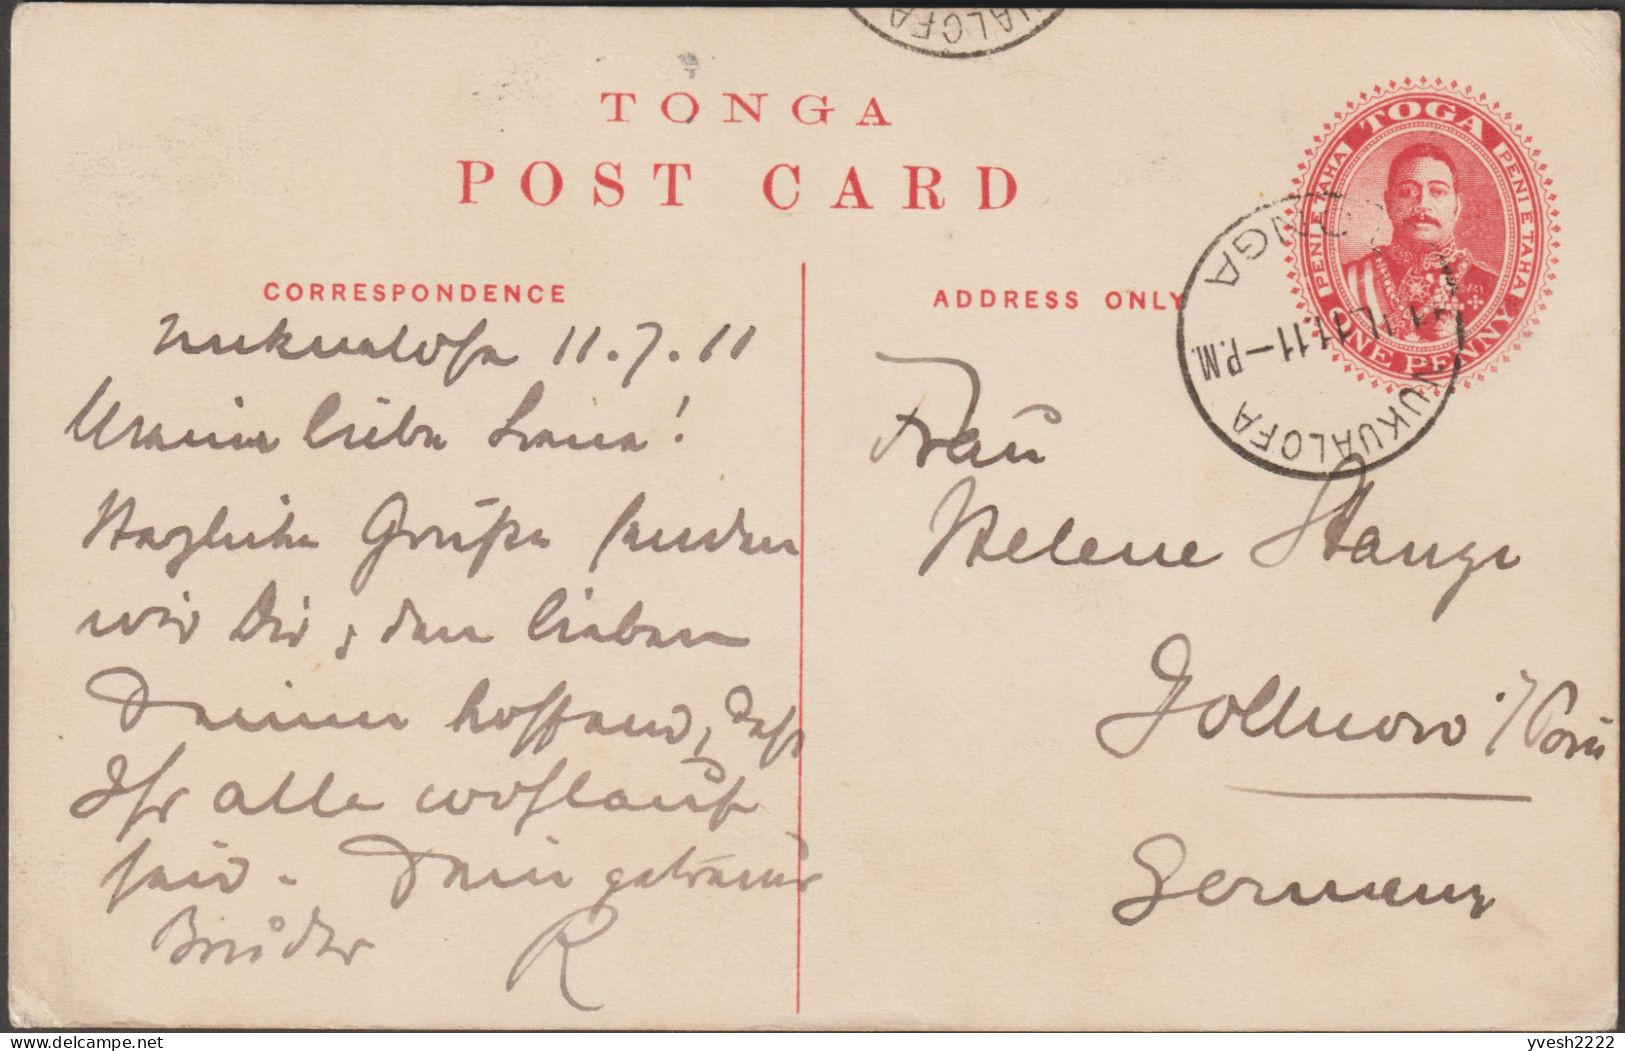 NUKUALOFA
TONGA
POST CARD
TOGA
PENI E TAHA
PENI E TAHA
ONE PENNY
TONGA
11 JL 11.11-P.M.
NUKUALOFA
CORRESPONDENCE
ADDRESS ONLY
Nukualofa 11.7.11
Meine liebe Lena!
Herzliche Grüße senden
wir Dir, den lieben
Deinen hoffend, daß
Ihr alle wohlauf
seid. Dein getreuer
Bruder R
Frau
Helene Stange
Gollnow i/Pom
Germany
yvesh2222